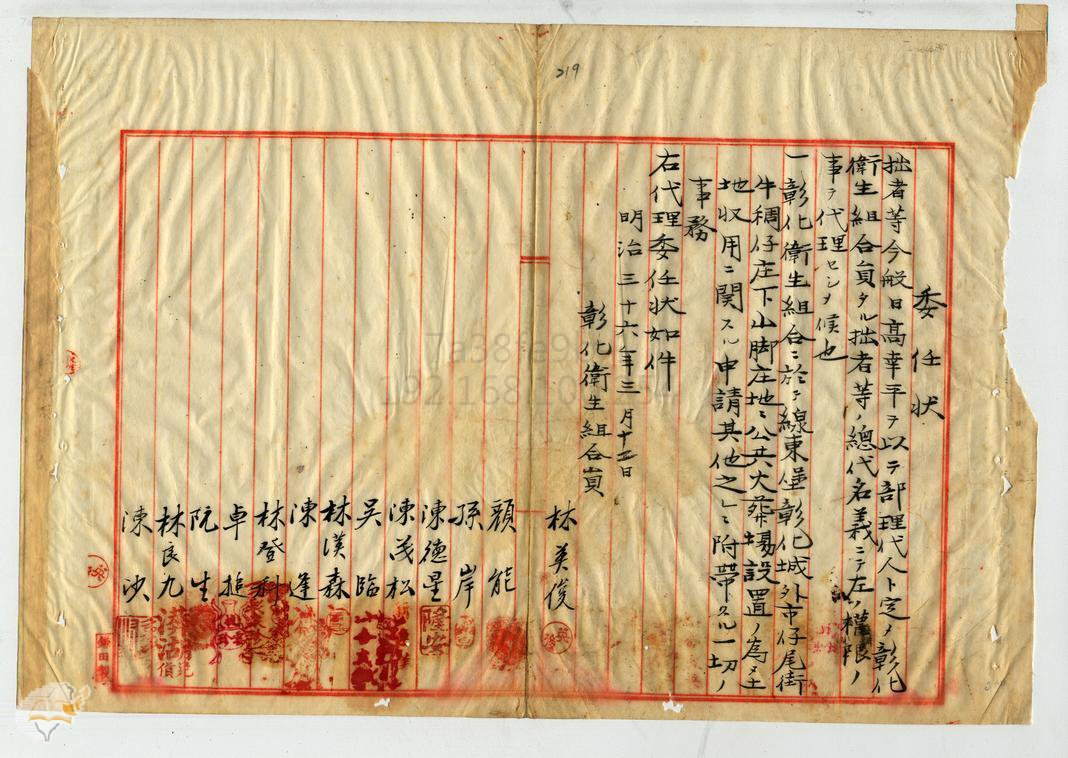 委任状
拙者等今般日高幸平ヲ以テ部理代人ト定メ彰化
衛生組合員タル拙者等ノ總代名義ニテ左ノ權限ノ
事ヲ代理セシメ候也
一彰化衛生組合ニ於テ線東堡彰化城外市仔尾街
牛稠仔庄下山脚庄地ニ公共火葬場設置ノ為メ土
地収用ニ関スル申請其他之レニ附帯スル一切ノ
事務
右代理委任状如件
明治三十六年三月十五日
彰化衛生組合員
林英俊
顔能
孫岸
陳德星
陳茂松
吳臨
林漢森
陳逢
林登科
卓搥
阮生
林良九
陳
219
7a38fe9b-1 2023-02-27 12:31